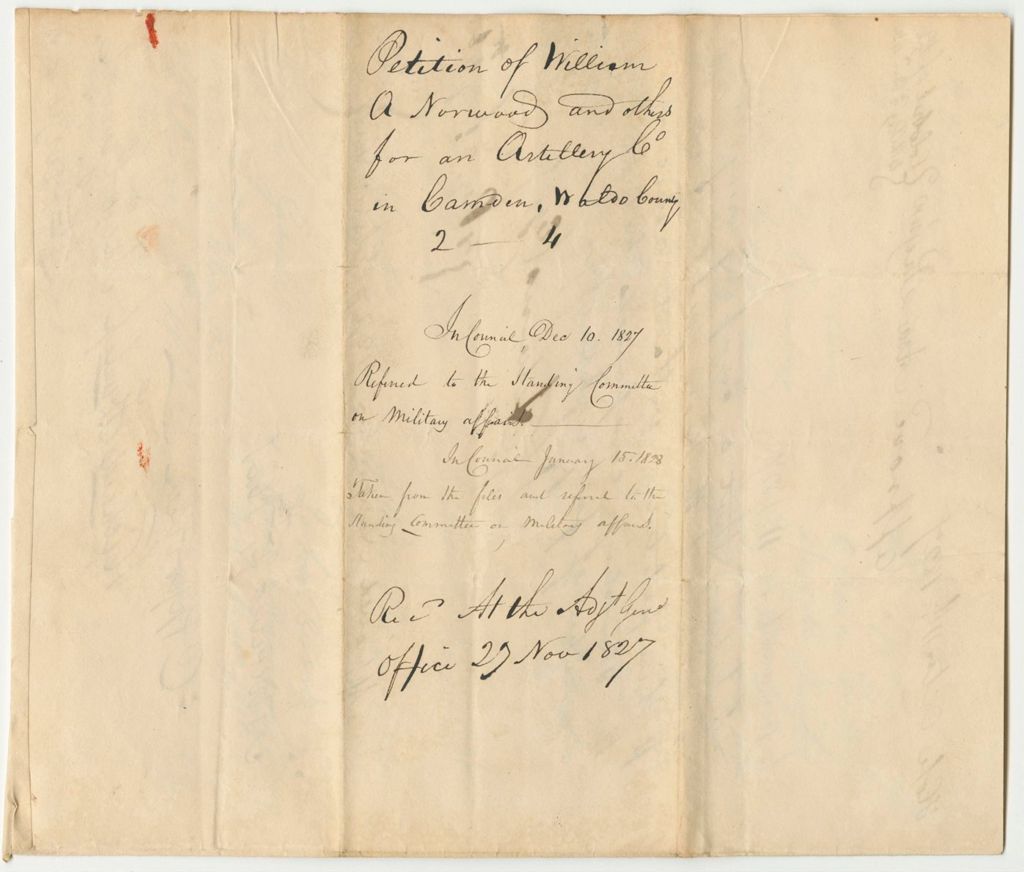 Petition of William
A Norwood and others
for an Artillery Co
in Camden, Waldo County
2 — 4
In Council, Dec 10. 1827
Referred to the Standing Committee
on Military affairs.
In Council January 15. 1828
Taken from the files and referred to the
Standing Committee on Military affairs.
Recd At the Adjt Genl
Office 27 Nov 1827